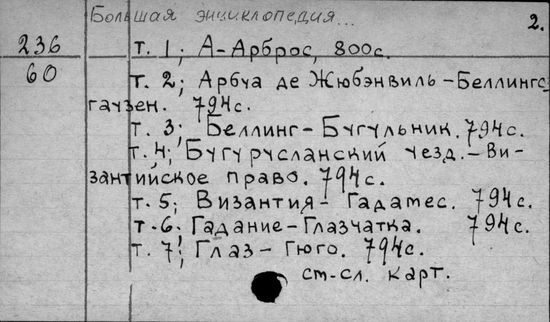 Большая энциклопедия...
2.
236
60
т. 1; А-Арброс, 800с.
т. 2; Арбуа де Жюбэнвиль-Беллинсг
гаузен. 794с.
т. 3; Беллинг-Бугульник. 794с.
т. 4; Бугурусланский уезд.-Ви-
зантийское право. 794с.
т. 5; Византия-Гадамес. 794с.
т. 6. Гадание-Глазчатка. 794с.
т. 7; Глаз-Гюго. 794с.
см-сл. карт.